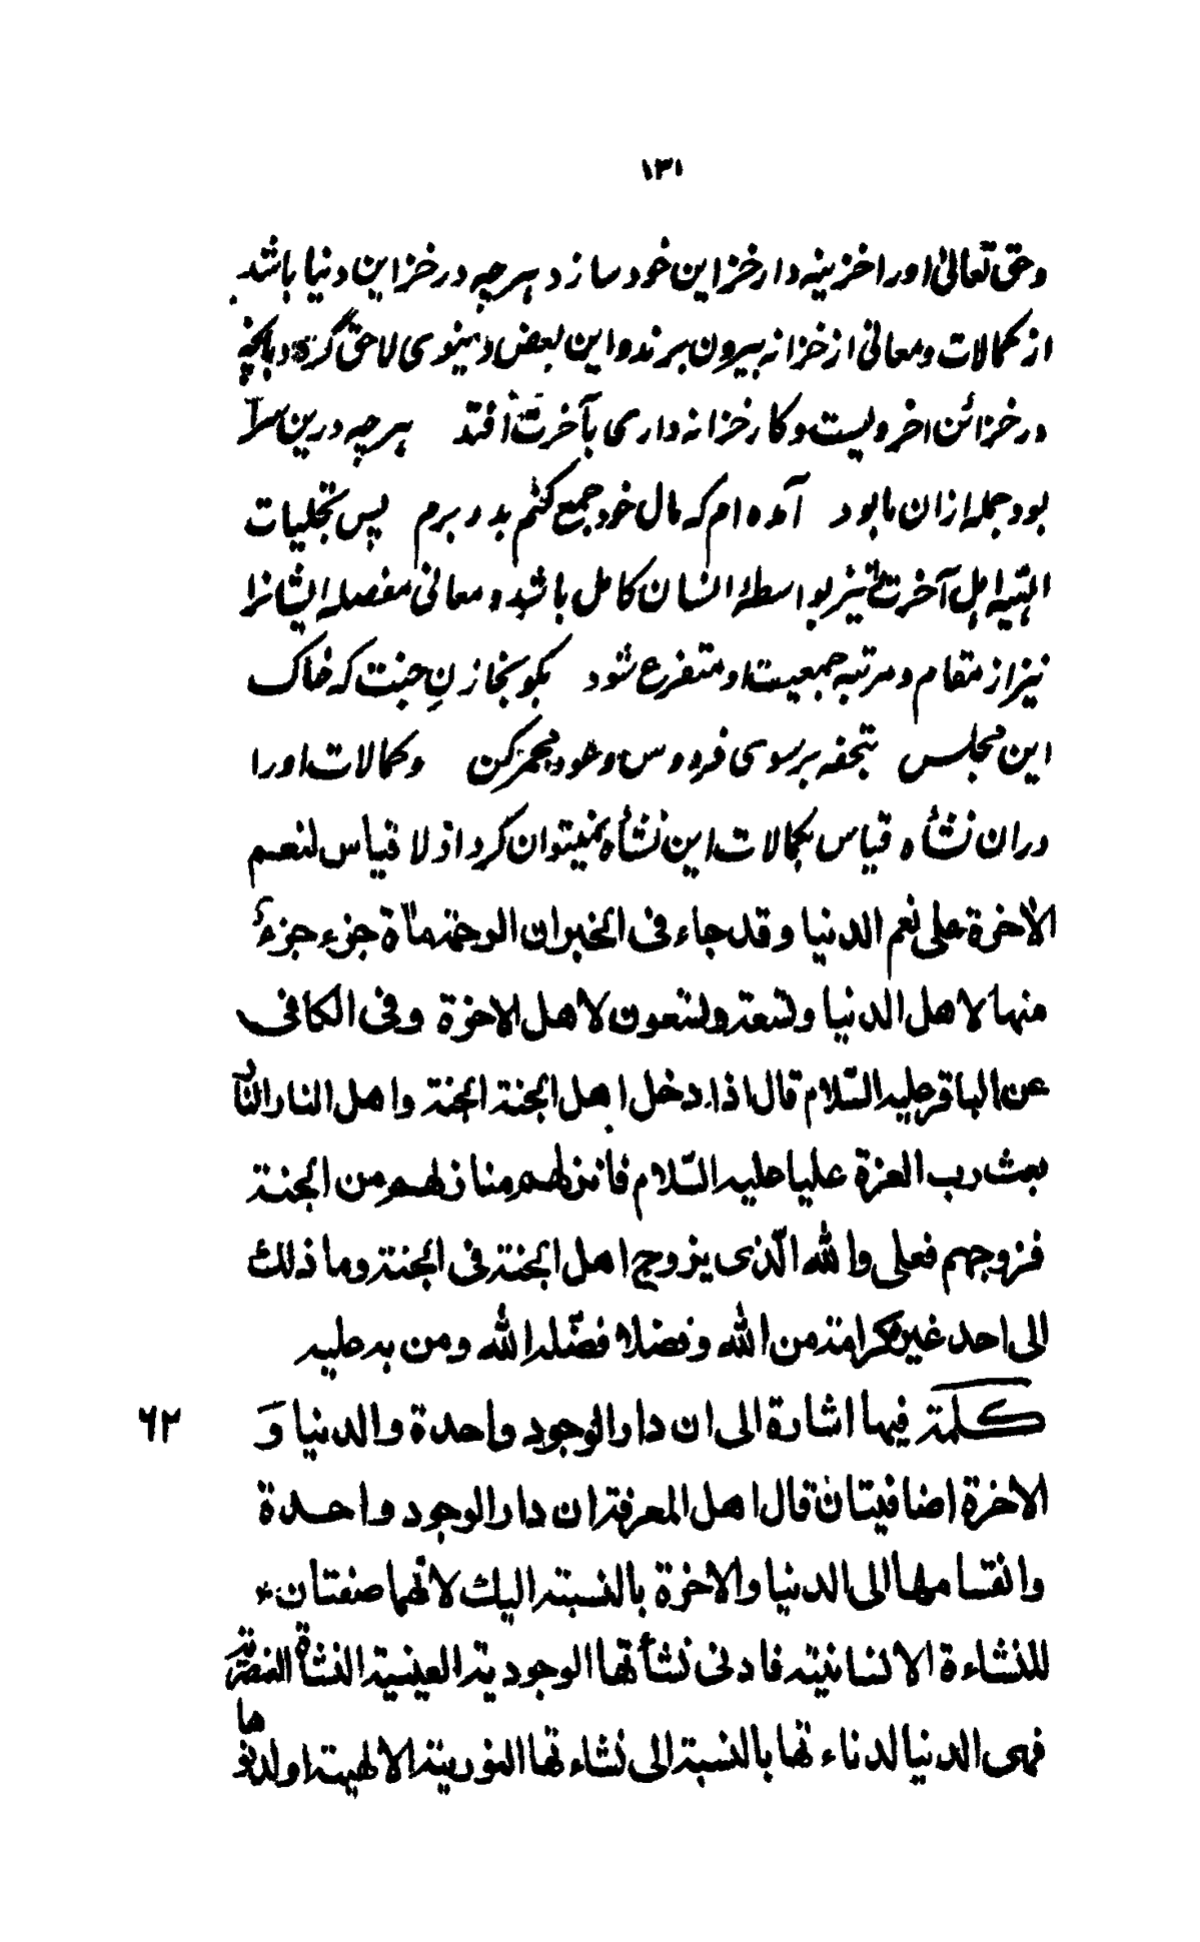 ١٣١
وحق تعالی او را خزینه دار خزاین خود سازد هرچه در خزاین دنیا باشد
از کمالات و معانی از خزانه بیرون برند و این بعض دنیوی لاحق گردد بآنچه
در خزائن اخرویست و کار خزانه داری بآخرت افتد هرچه درین سرا
بود جمله ازان ما بود آمده ام که مال خود جمع کنم بدر برم پس تجلیات
الهیه اهل آخرت نیز بواسطهٔ انسان کامل باشد و معانی مفصله ایشانرا
نیز از مقام و مرتبه جمعیت او متفرع شود بگو بخازن جنت که خاک
این مجلس بتحفه بر سوی فردوس و عود مجمر کن و کمالات او را
دران نشأه قیاس بکمالات این نشأه نمیتوان کرد اذ لا قیاس لنعم
الاخرة علی نعم الدنیا و قد جاء فی الخبر ان الرحمة مأة جزء جزءٌ
منها لاهل الدنیا و تسعة و تسعون لاهل الاخرة و فی الکافی
عن الباقر علیه السّلام قال اذا دخل اهل الجنة الجنة و اهل النار النار
بعث رب العزة علیا علیه السّلام فانزلهم منازلهم من الجنة
فزوجهم فعلی والله الّذی یزوج اهل الجنة فی الجنة وما ذلك
الی احد غیره کرامة من الله و فضلا فضّله الله و من به علیه
٦٢ کلمة فیها اشارة الی ان دار الوجود واحدة والدنیا وَ
الاخرة اضافیتان قال اهل المعرفة ان دار الوجود واحدة
وانقسامها الی الدنیا والاخرة بالنسبة الیك لانهما صفتان
للنشاءة الانسانیة فادنی نشأتها الوجودیة العینیة النشأة العنصریة
فهی الدنیا لدناءتها بالنسبة الی نشاءتها النوریة الالهیة او لدنوها